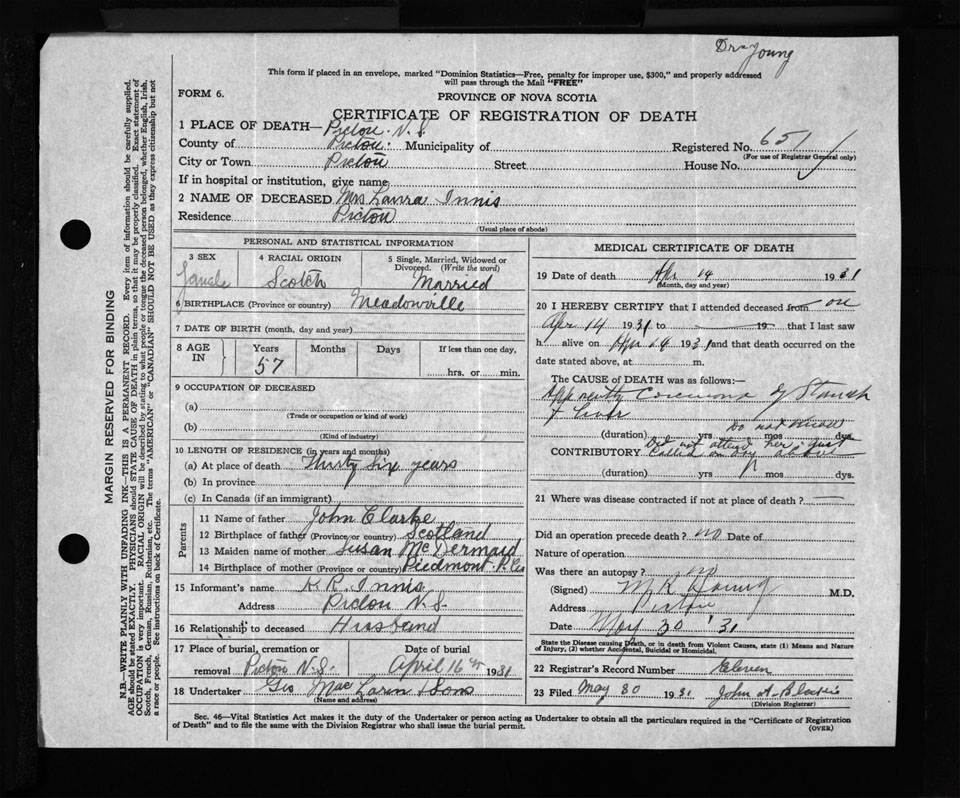 Dr Young
This form if placed in an envelope, marked "Dominion Statistics—Free, penalty for improper use, $300," and properly addressed
will pass through the Mail "FREE"
FORM 6.
PROVINCE OF NOVA SCOTIA
CERTIFICATE OF REGISTRATION OF DEATH
1 PLACE OF DEATH— Pictou N.S.
County of Pictou Municipality of
Registered No. 651
(For use of Registrar General only)
City or Town Pictou Street House No.
If in hospital or institution, give name
2 NAME OF DECEASED Mrs Laura Innis
Residence Pictou
(Usual place of abode)
MARGIN RESERVED FOR BINDING
N.B.—WRITE PLAINLY WITH UNFADING INK—THIS IS A PERMANENT RECORD. Every item of information should be carefully supplied.
AGE should be stated EXACTLY. PHYSICIANS should STATE CAUSE OF DEATH in plain terms, so that it may be properly classified. Exact statement of
OCCUPATION is very important. RACIAL ORIGIN will be described by stating to what people or tongue the deceased person belonged, whether English, Irish,
Scotch, French, German, Russian, Ruthenian, etc. The terms "AMERICAN" or "CANADIAN" SHOULD NOT BE USED as they express citizenship but not
a race or people. See instructions on back of Certificate.
PERSONAL AND STATISTICAL INFORMATION
3 SEX
4 RACIAL ORIGIN
5 Single, Married, Widowed or
Divorced. (Write the word)
Female Scotch Married
6 BIRTHPLACE (Province or country) Meadowville
7 DATE OF BIRTH (month, day and year)
8 AGE IN Years Months Days If less than one day,
57
hrs. or min.
9 OCCUPATION OF DECEASED
(a)
(Trade or occupation or kind of work)
(b)
(Kind of industry)
10 LENGTH OF RESIDENCE (in years and months)
(a) At place of death Thirty Six years
(b) In province
(c) In Canada (if an immigrant)
Parents
11 Name of father John Clarke
12 Birthplace of father (Province or country) Scotland
13 Maiden name of mother Susan McDermaid
14 Birthplace of mother (Province or country) Piedmont P. Co
15 Informant's name K R. Innis
Address Pictou N.S.
16 Relationship to deceased Husband
17 Place of burial, cremation or Date of burial
removal Pictou N.S. April 16th 1931
18 Undertaker Geo MacLaren & Sons
(Name and address)
MEDICAL CERTIFICATE OF DEATH
19 Date of death Apr 14 1931
(Month, day and year)
20 I HEREBY CERTIFY that I attended deceased from on
Apr 14 1931 to 19 that I last saw
h alive on Apr 14 1931 and that death occurred on the
date stated above, at m.
The CAUSE of DEATH was as follows:—
Apparently Carcinoma of Stomach
& Liver
Do not know
(duration) yrs mos dys.
Did not attend her just
CONTRIBUTORY Called on day above
(duration) yrs mos dys.
21 Where was disease contracted if not at place of death?
Did an operation precede death? no Date of
Nature of operation
Was there an autopsy? no
(Signed) M R Young M.D.
Address Pictou
Date May 30 '31
State the Disease causing Death, or in death from Violent Causes, state (1) Means and Nature
of Injury, (2) whether Accidental, Suicidal or Homicidal.
22 Registrar's Record Number Eleven
23 Filed May 30 1931 John A.
(Division Registrar)
Sec. 46—Vital Statistics Act makes it the duty of the Undertaker or person acting as Undertaker to obtain all the particulars required in the "Certificate of Registration
of Death" and to file the same with the Division Registrar who shall issue the burial permit.
(OVER)